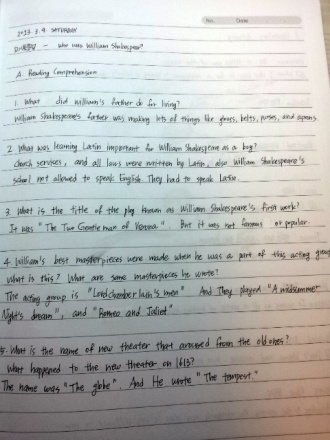 No. Date
2013. 3. 9. SATURDAY
- Who was William Shakespear?
A. Reading Comprehension
1. What did william's farther do for living?
William Shakespeare's farther was making lots of things like gloves, belts, purses, and aprons.
2. What was learning Latin important for William Shakespeare as a boy?
church services, and all laws were written by Latin, also William Shakespeare's
school not allowed to speak English. They had to speak Latin.
3. What is the title of the play known as William Shakespeare's first work?
It was "The Two Gentleman of Verona". But it was not famous or popular.
4. William's best masterpieces were made when he was a part of this acting group
What is this? What are some masterpieces he wrote?
The acting gorup is "Lord chamberlain's men" And They played "A midsummer
Night's dream", and "Romeo and Juliet"
5. What is the name of new theater that from the old ones?
What happened to the new theater on 1613?
The name was "The globe". And He wrote "The tempest."